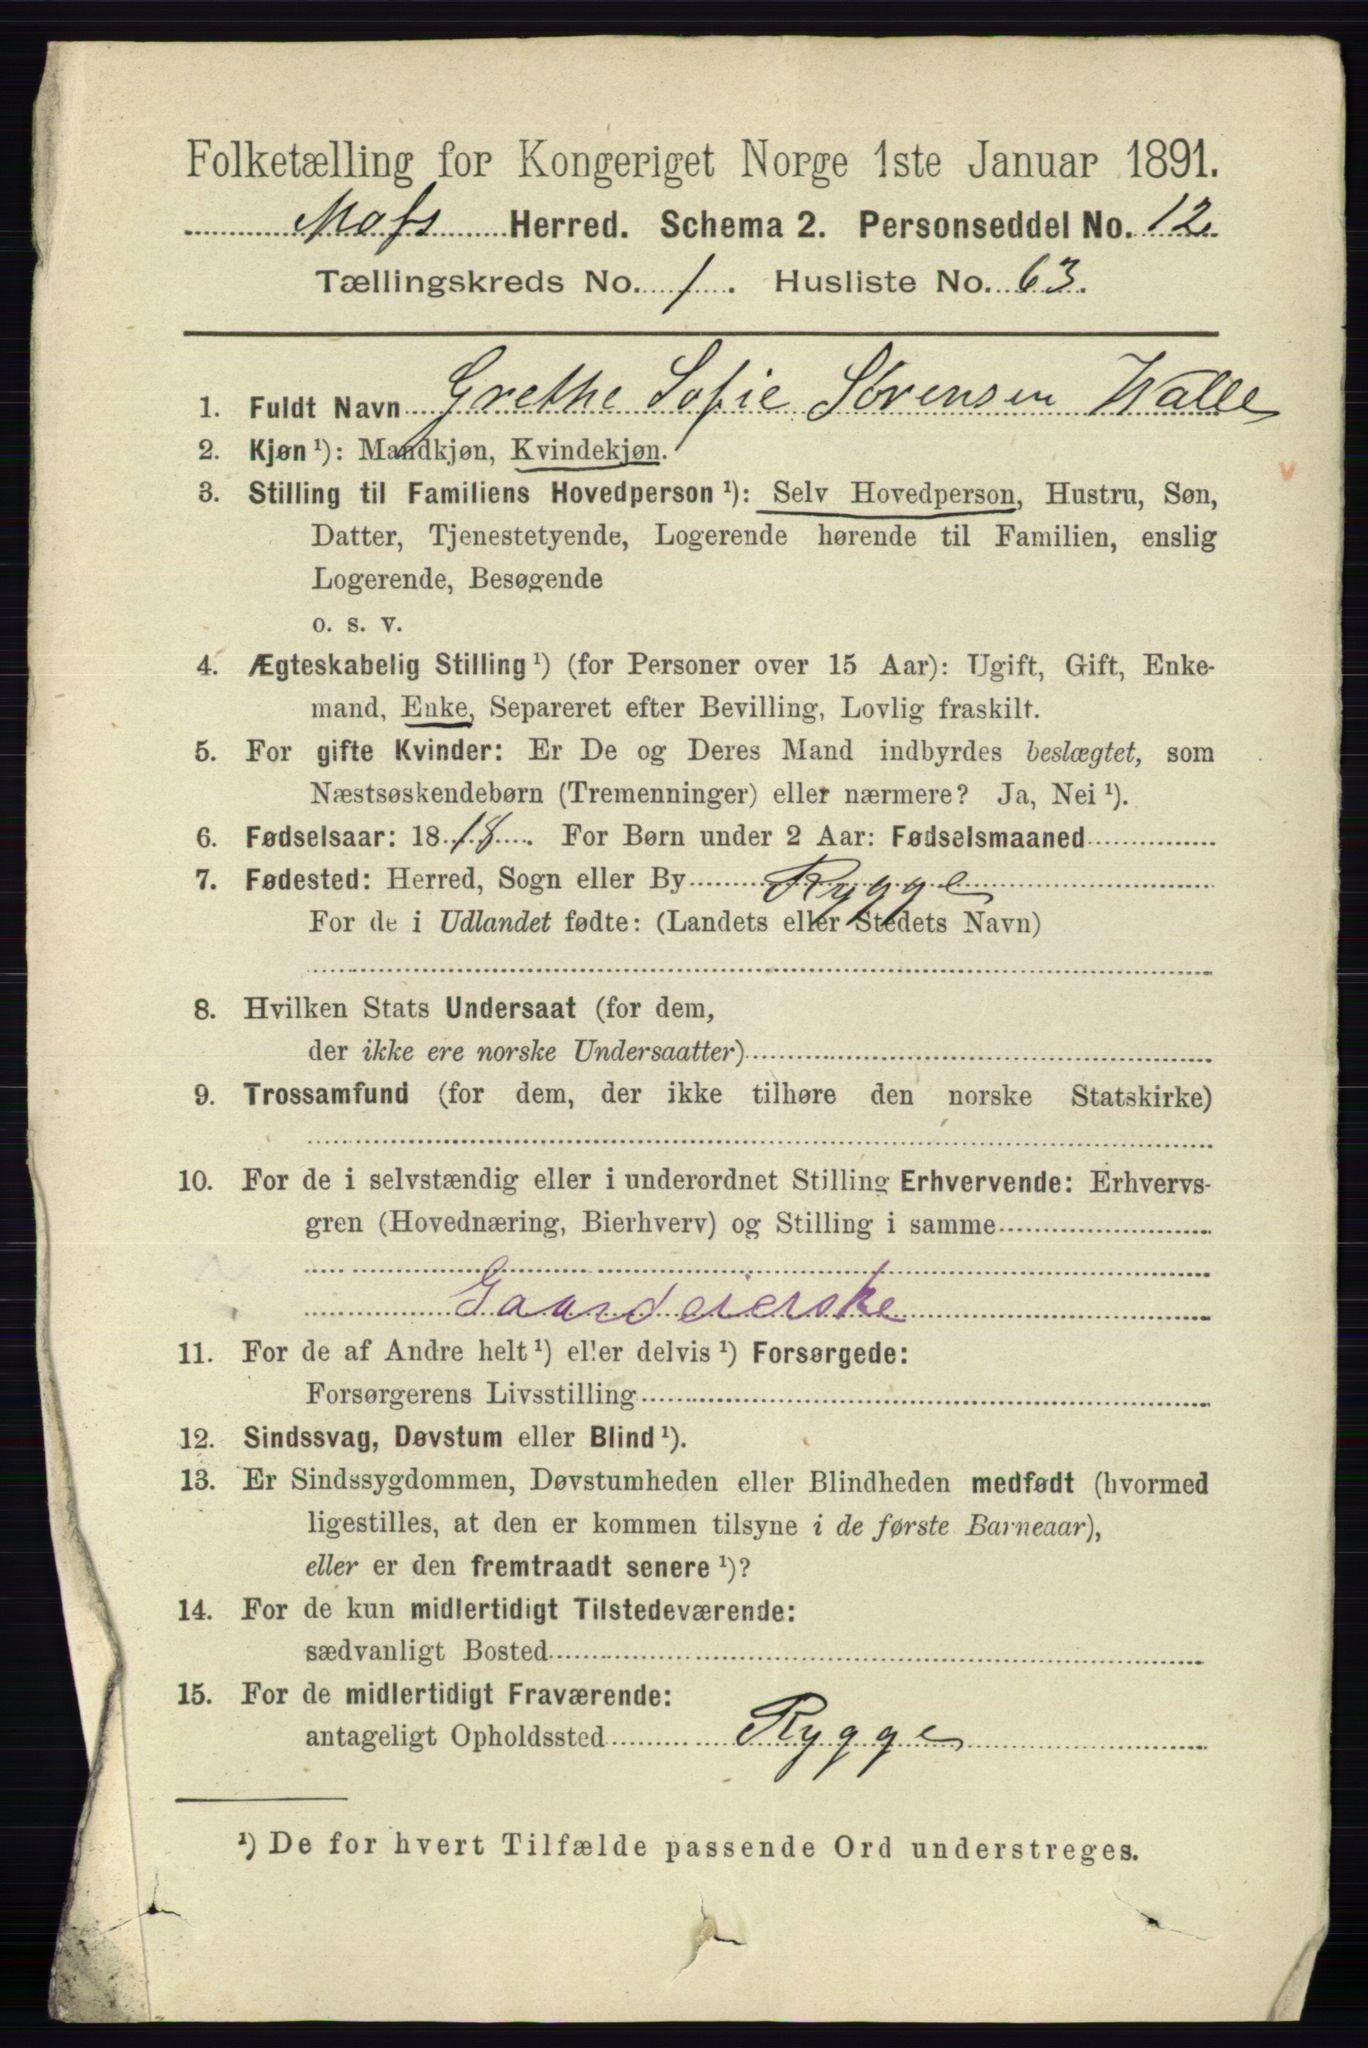 Folketælling for Kongeriget Norge 1ste Januar 1891.
Moss Herred. Schema 2. Personseddel No. 12.
Tællingskreds No. 1. Husliste No. 63.
1. Fuldt Navn Grethe Sofie Sörensen Walle
2. Kjøn¹): Mandkjøn, Kvindekjøn.
3. Stilling til Familiens Hovedperson¹): Selv Hovedperson, Hustru, Søn,
Datter, Tjenestetyende, Logerende hørende til Familien, enslig
Logerende, Besøgende
o. s. v.
4. Ægteskabelig Stilling¹) (for Personer over 15 Aar): Ugift, Gift, Enke-
mand, Enke, Separeret efter Bevilling, Lovlig fraskilt.
5. For gifte Kvinder: Er De og Deres Mand indbyrdes beslægtet, som
Næstsøskendebørn (Tremenninger) eller nærmere? Ja, Nei¹).
6. Fødselsaar: 1818. For Børn under 2 Aar: Fødselsmaaned
7. Fødested: Herred, Sogn eller By Rygge
For de i Udlandet fødte: (Landets eller Stedets Navn)
8. Hvilken Stats Undersaat (for dem,
der ikke ere norske Undersaatter)
9. Trossamfund (for dem, der ikke tilhøre den norske Statskirke)
10. For de i selvstændig eller i underordnet Stilling Erhvervende: Erhvervs-
gren (Hovednæring, Bierhverv) og Stilling i samme
Gaardeierske
11. For de af Andre helt¹) eller delvis¹) Forsørgede:
Forsørgerens Livsstilling
12. Sindssvag, Døvstum eller Blind¹).
13. Er Sindssygdommen, Døvstumheden eller Blindheden medfødt (hvormed
ligestilles, at den er kommen tilsyne i de første Barneaar),
eller er den fremtraadt senere¹)?
14. For de kun midlertidigt Tilstedeværende:
sædvanligt Bosted
15. For de midlertidigt Fraværende:
antageligt Opholdssted Rygge
¹) De for hvert Tilfælde passende Ord understreges.